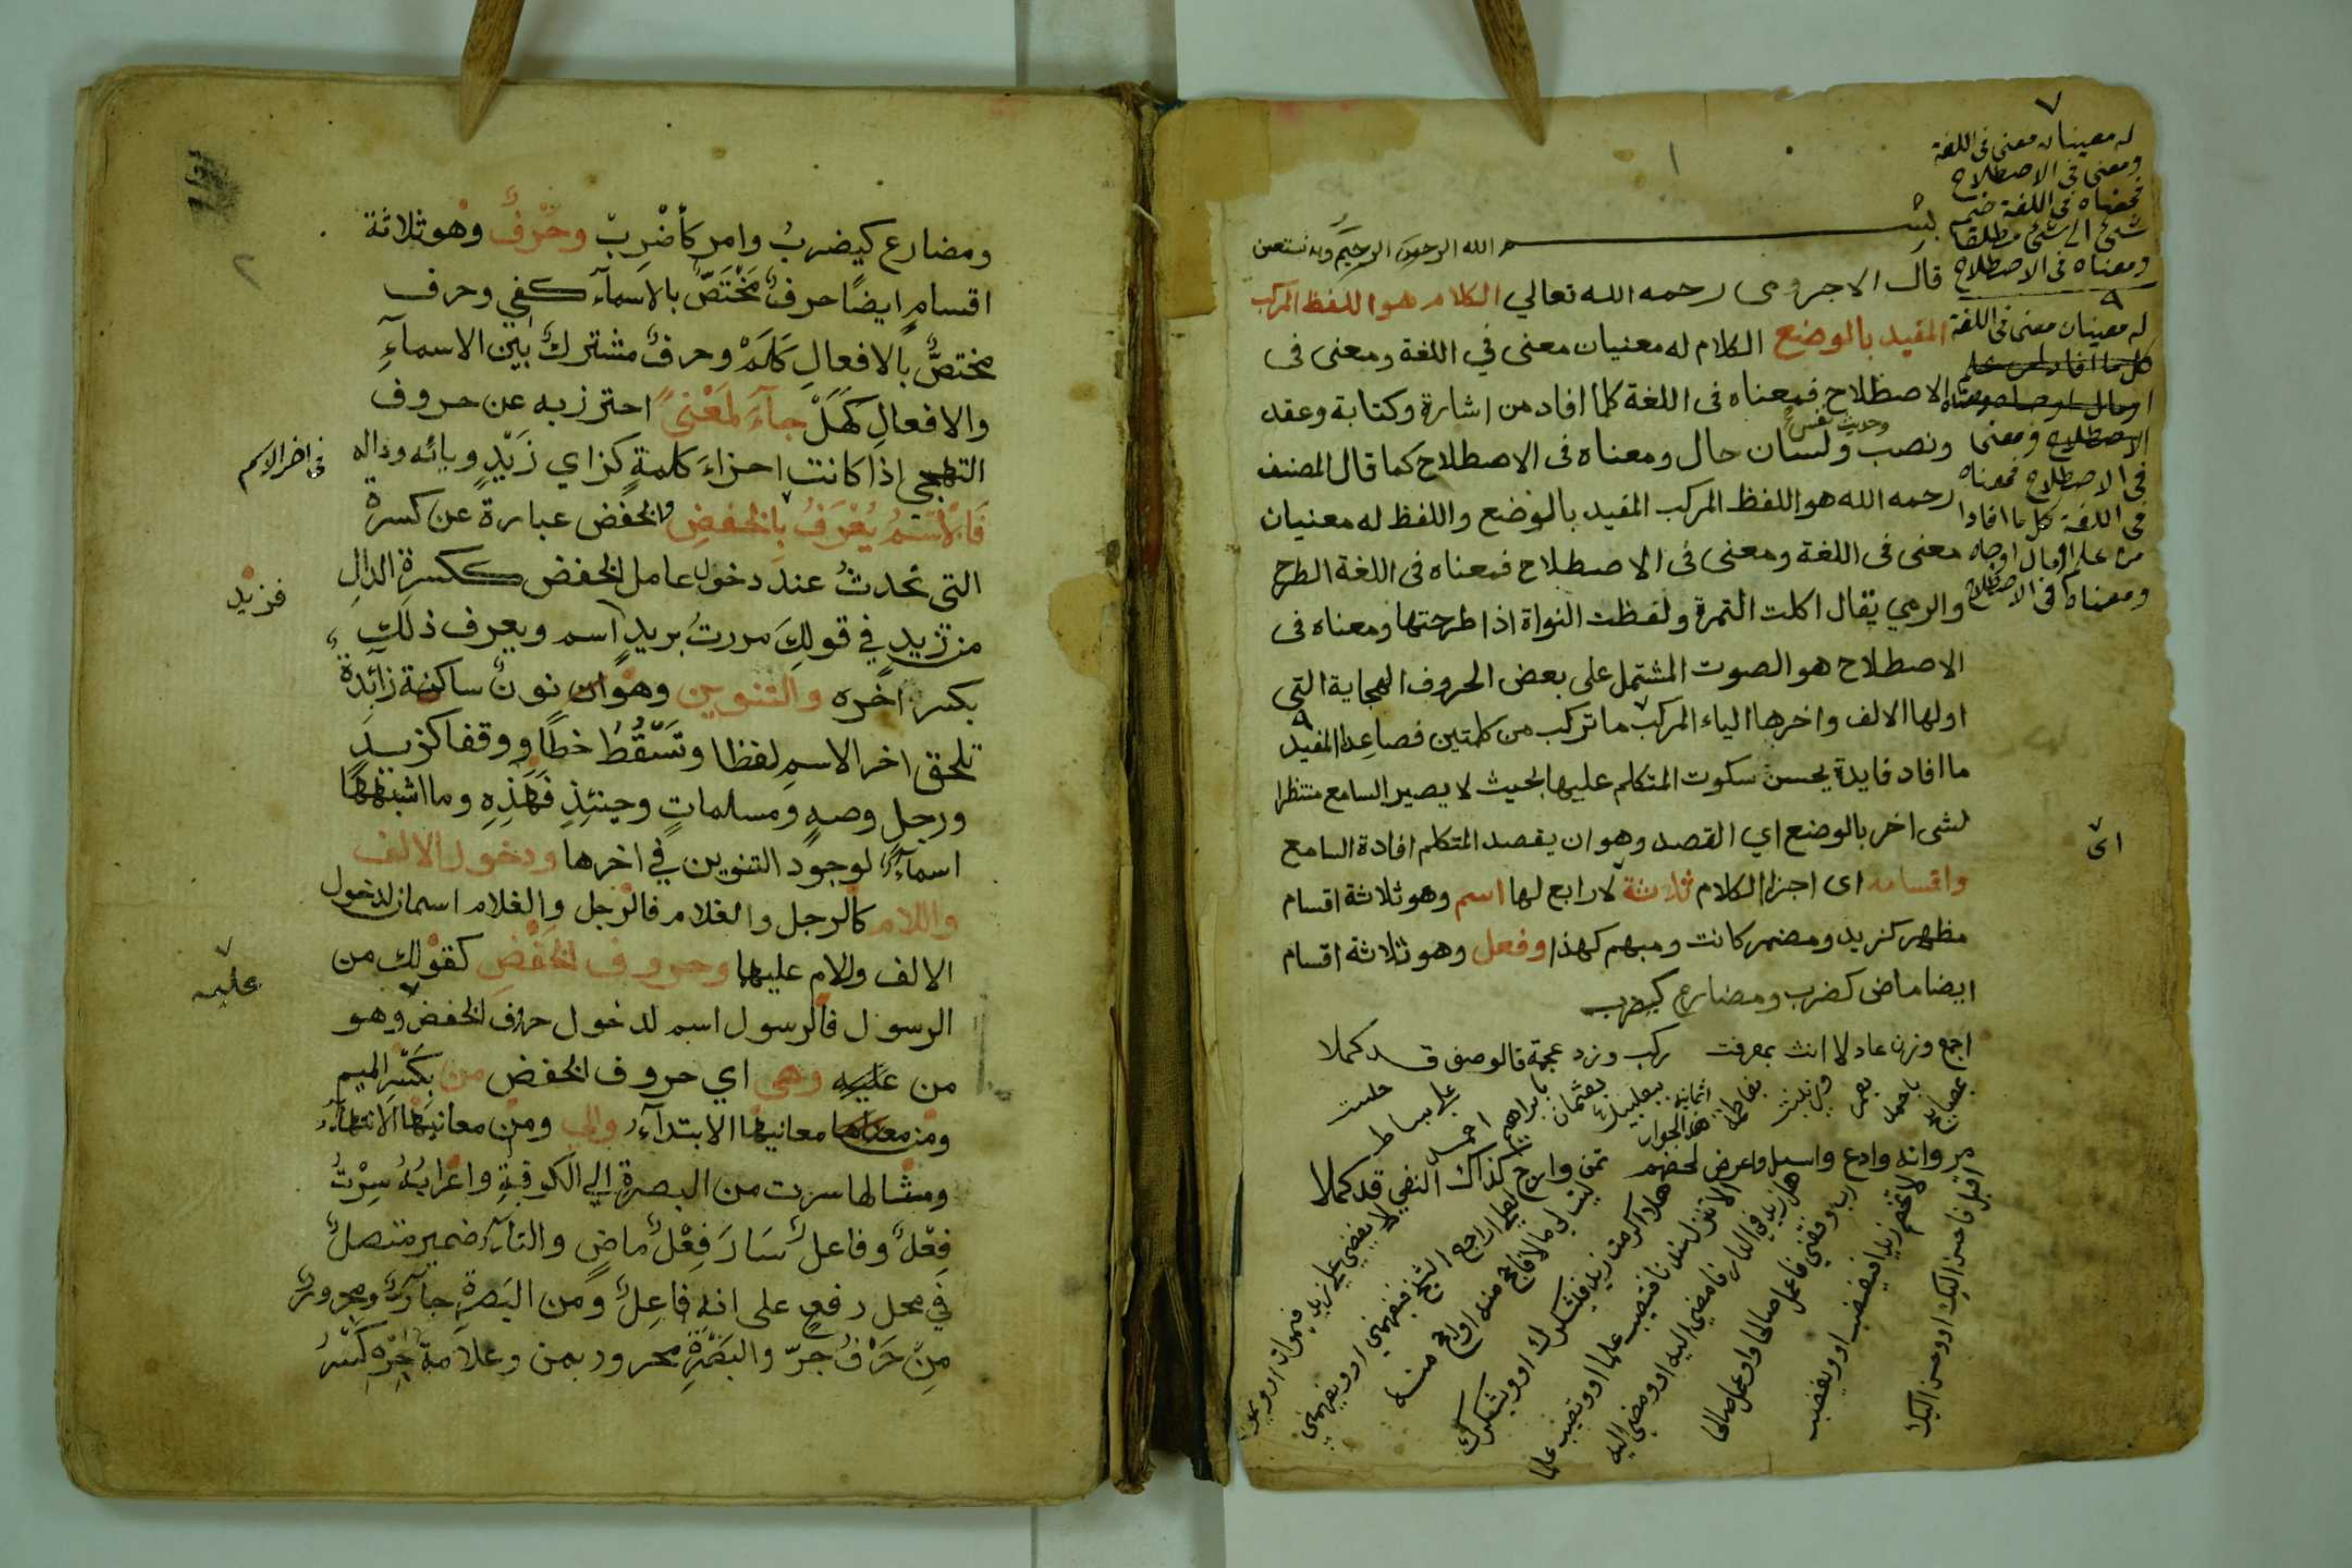 بسم الله الرحمن الرحيم وبه نستعين
قال الاجرومى رحمه الله تعالي الكلام هو اللفظ المركب
المفيد بالوضع الكلام له معنيان معنى في اللغة ومعنى فى
الاصطلاح فمعناه فى اللغة كلما افاد من اشارة وكتابة وعقد
وحديث نفس
ونصب ولسان حال ومعناه فى الاصطلاح كما قال المصنف
رحمه الله هو اللفظ المركب المفيد بالوضع واللفظ له معنيان
معنى فى اللغة ومعنى فى الاصطلاح فمعناه فى اللغة الطرح
والرمي يقال اكلت التمرة ولفظت النواة اذا طرحتها ومعناه فى
الاصطلاح هو الصوت المشتمل على بعض الحروف الهجاية التى
اولها الالف واخرها الياء المركب ما تركب من كلمتين فصاعدا المفيد
ما افاد فايدة يحسن سكوت المتكلم عليها بحيث لا يصير السامع منتظرا
لشى اخر بالوضع اي القصد وهو ان يقصد المتكلم افادة السامع
واقسامه اى اجزا الكلام ثلاثة لا رابع لها اسم وهو ثلاثة اقسام
مظهر كزيد ومضمر كانت ومبهم كهذا وفعل وهو ثلاثة اقسام
ايضا ماض كضرب ومضارع كيضرب
اجمع وزن عادلا انث بمعرفت ركب وزد عجمة فالوصف قد كملا
مر وانه وادع واسل واعرض لحضهم تمن وارج كذاك النفي قد كملا
له معينان معنى فى اللغة
ومعنى فى الاصطلاح
فمعناه فى اللغة ضم
شئ الى شئ مطلقا
ومعناه فى الاصطلاح
له معينان معنى فى اللغة
الاصطلاح ومعنى
فى الاصطلاح فمعناه
فى اللغة كل ما افادا
من علم او مال او جاه
ومعناه فى الاصطلاح
اى
بمصابيح
باحمد
بعمر
وزينب
بفاطمة
ببعلبك
بعثمان
بابراهيم
هذا الجواب
اقبل فاحسن اليك او واحسن اليك
لا تخصم زيدا فيغضب او ويغضب
رب وفقني فاعمل صالحا او واعمل صالحا
هل زيد في الدار فامضي اليه او وامضي اليه
الا تنزل عندنا فتصيب علما او وتصيب علما
هلا اكرمت زيدا فيشكرك او ويشكرك
ليت لي مالا فاحج منه او واحج منه
لعلي اراجع الشيخ فيفهمني او ويفهمني
لا يقضي على زيد فيموت او ويموت
ومضارع كيضرب وامر كأضرب وحرف وهو ثلاثة
اقسام ايضا حرف مختص بالاسماء كفي وحرف
مختص بالافعال كلم وحرف مشترك بين الاسماء
والافعال كهل جاء لمعنى احترز به عن حروف
التهجي اذا كانت اجزاء كلمة كزاي زيد ويائه وداله
فالاسم يعرف بالخفض والخفض عبارة عن كسرة
التى تحدث عند دخول عامل الخفض ككسرة الدال
من زيد في قولك مررت بزيد اسم ويعرف ذلك
بكسر اخره والتنوين وهو ان نون ساكنة زائدة
تلحق اخر الاسم لفظا وتسقط خطا ووقفا كزيد
ورجل وصه ومسلمات وحينئذ فهذه وما اشبهها
اسماء لوجود التنوين في اخرها ودخول الالف
واللام كالرجل والغلام فالرجل والغلام اسمان لدخول
الالف والام عليها وحروف الخفض كقولك من
الرسول فالرسول اسم لدخول حرف الخفض وهو
من عليه وهى اي حروف الخفض من بكسر الميم
ومن معناها معانيها الابتداء والى ومن معانيها الانتهاء
ومثالها سرت من البصرة الي الكوفة واعرابه سرت
فعل وفاعل سار فعل ماض والتاء ضمير متصل
في محل رفع على انه فاعل ومن البصرة جار ومجرور
من حرف جر والبصرة مجرور بمن وعلامة جره كسر
فى اخر الاسم
فزيد
عليه